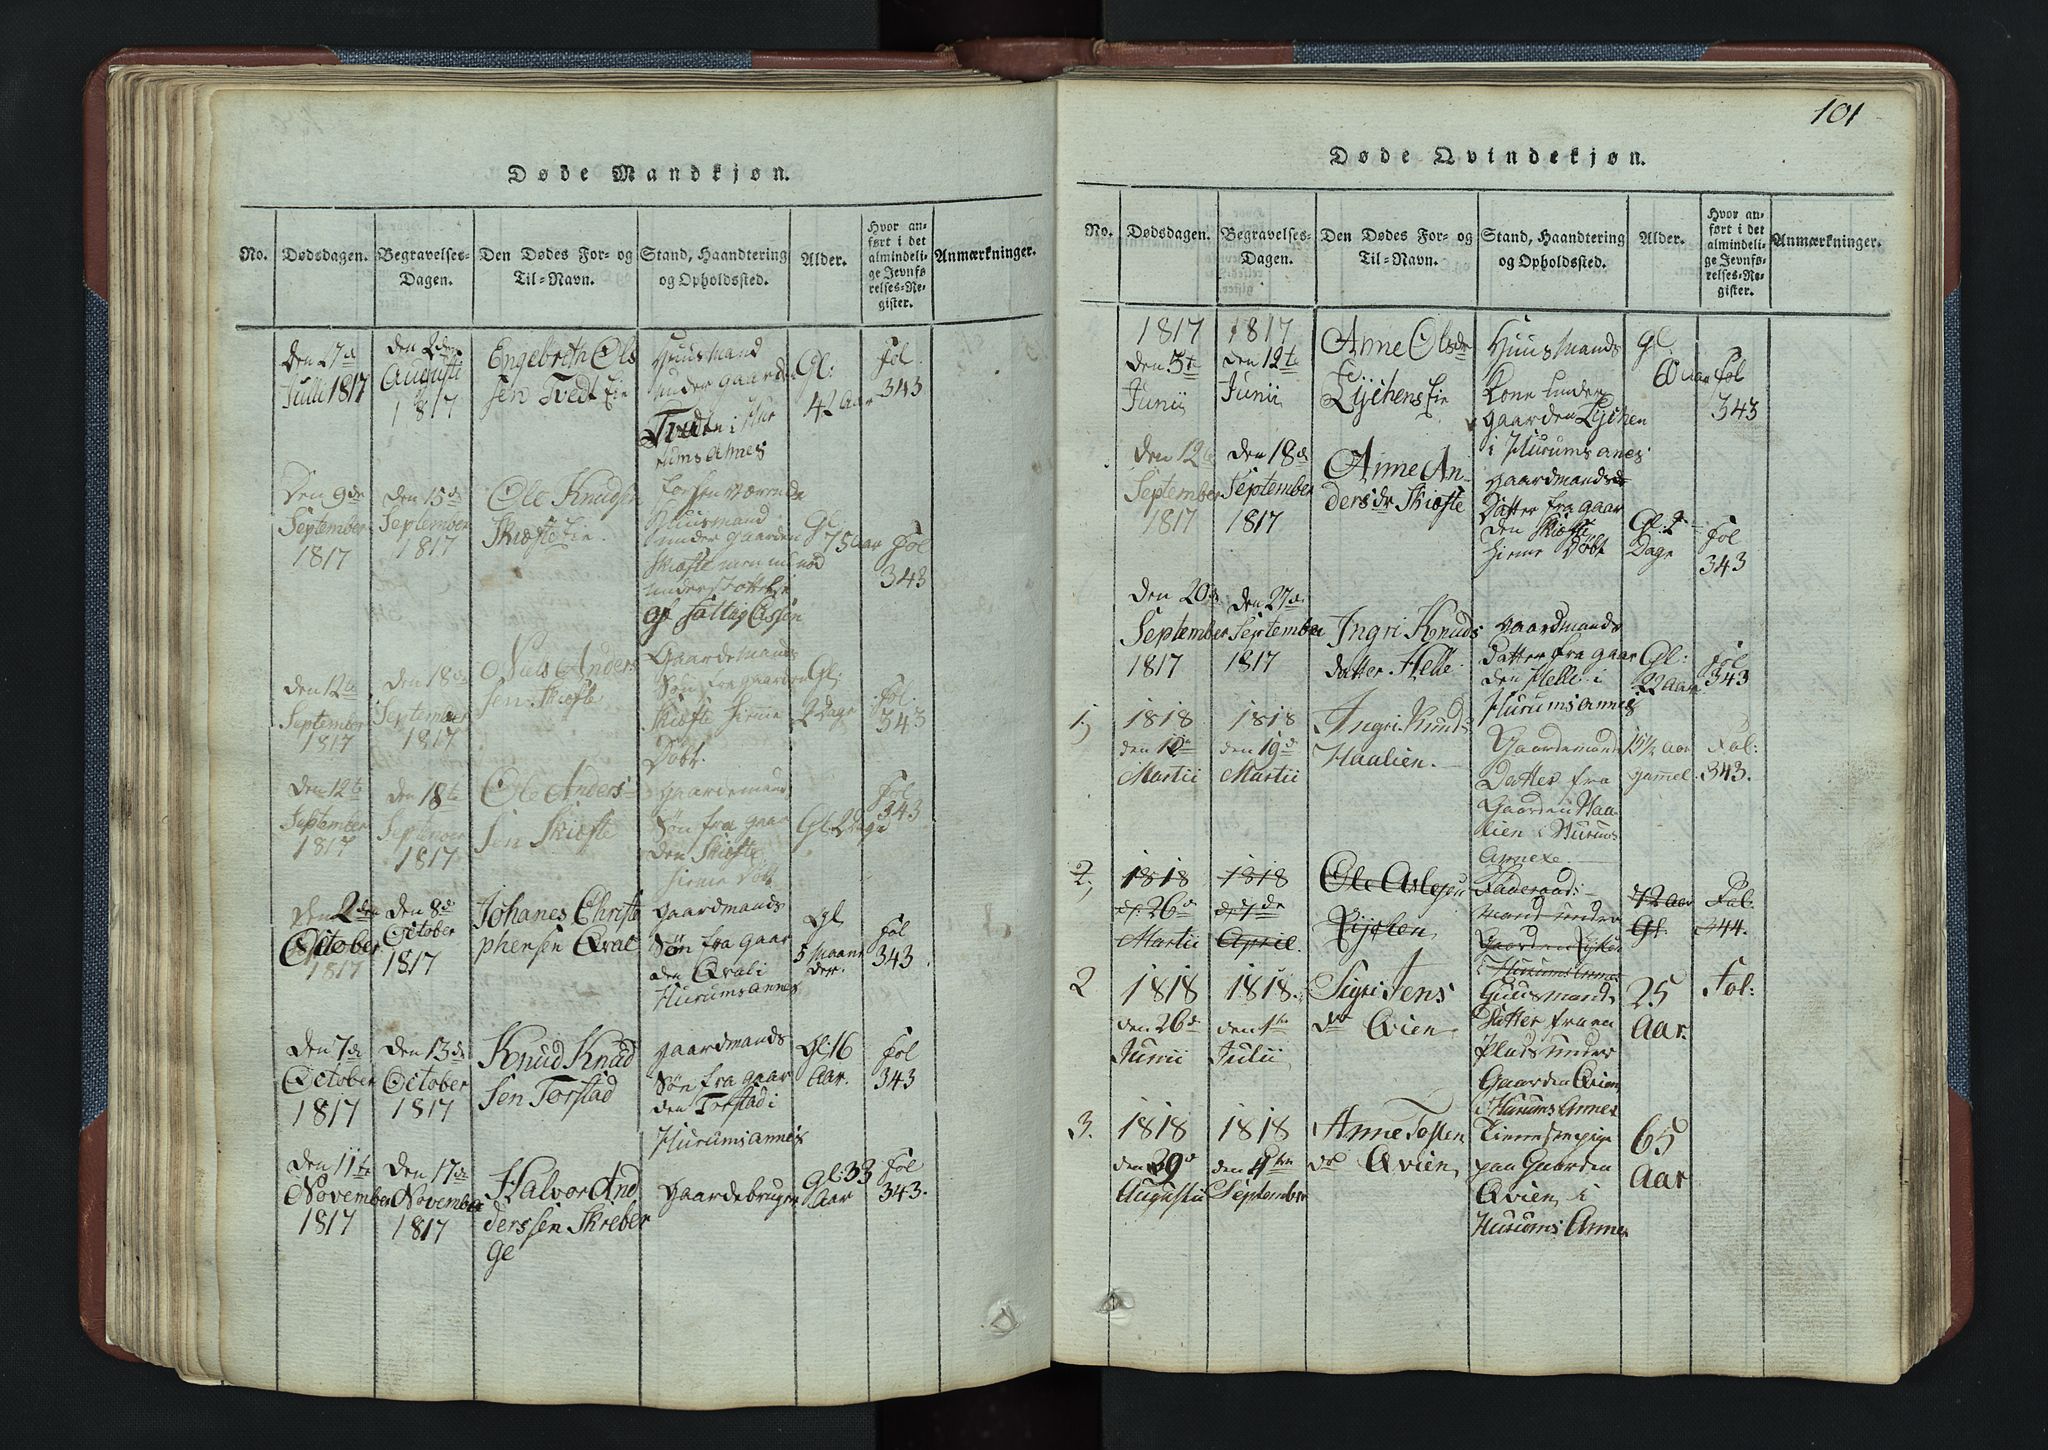 Døde Mandkjøn.
No.
Dødsdagen.
Begravelses-
Dagen.
Den Dødes For- og
Til-Navn.
Stand, Haandtering
og Opholdssted.
Alder.
Hvor an-
ført i det
almindeli-
ge Jevnfø-
relses-Re-
gister.
Anmærkninger.
den 27de
Julii 1817
den 2den
Augusti
1817
Engebreth Ols
sen Tvedt Eie
Huusmand
under gaarden
Tvedten i Hu
rums Annes
Gl:
42 Aar
Fol
343
Den 9de
September
1817
den 15de
September
1817
Ole Knudsen
Skiøfte Eie.
forhen værende
Huusmand
under gaarden
Skiøfte men nu
understøttet
af
Gl
75 Aar
Fol
343
den 12te
September
1817
den 18de
September
1817
Niels Anders
sen Skiøfte
Gaardemands
Søn fra gaarden
Skiøfte hiemme
Døbt.
Gl:
2 Dage
Fol.
343
den 12te
September
1817
den 18te
September
1817
Ole Anders-
sen Skiøfte
gaardemands
Søn fra gaar
den Skiøfte
hieme Døbt
Gl: 2 Dage
Fol
343
den 2den
October
1817
den 8de
October
1817
Johanes Christo
phersen Qvale
gaardmands
Søn fra gaar
den Qvale i
Hurums annes
Gl
5 Maane
der.
Fol
343
den 7de
October
1817
den 13de
October
1817
Knud Knud
sen Torstad
gaardmands
Søn fra gaar
den Torstad i
Hurums annes
Gl: 16
Aar.
Fol
343
den 11te
November
1817
den 17de
November
1817
Halvor And
derssen Skreber
ge
gaardebruger
Gl: 33
Aar
Fol
343.
101
Døde Qvindekjøn.
No.
Dødsdagen.
Begravelses-
Dagen.
Den Dødes For- og
Til-Navn.
Stand, Haandtering
og Opholdssted.
Alder.
Hvor an-
ført i det
almindeli-
ge Jevnfø-
relses-Re-
gister.
Anmærkninger.
1817
den 5te
Junii
1817
den 12te
Junii
Anne Olsdr
Lychens Eie
Huusmands
Kone under
gaarden Lychen
i Hurums anes
Gl.
60 Aar
Fol
343
den 12te
September
1817
den 18de
September
1817
Anne An-
dersdr Skiøfte
gaardmands
Datter fra gaar
den Skiøfte
hieme Døbt
Gl. 2
Dage
Fol
343
den 20de
September
1817
den 27de
September
1817
Ingri Knuds
datter Helle.
gaardmands
Datter fra gaar
den Helle i
Hurums annes
Gl:
22 Aar
Fol
343
1.)
1818
den
Martii
1818
den 19de
Martii
Ingri Knuds
Haalien.
Gaardemands
Datter fra
Gaarden Haa-
lien i Hurums
Annexe.
15½ Aar
gamel.
Fol:
343.
2,
1818
d: 26de
Martii
1818
d: 7de
April.
Ole
Mand under
Gaarden
i Hurums Annex
72 Aar
Gl.
Fol.
344.
2
1818
den 26de
Junii
1818.
den 1te
Julii
Sigri Jens
dr Qvien.
Huusmands
Datter fra en
Plads under
Gaarden Qvien
i Hurums Annex
25
Aar.
Fol:
3.
1818
den
Augustii
1818
den
September
Anne Tosten
dr Qvien,
Tienestepige
paa Gaarden
Qvien i
Hurums Annex
65
Aar